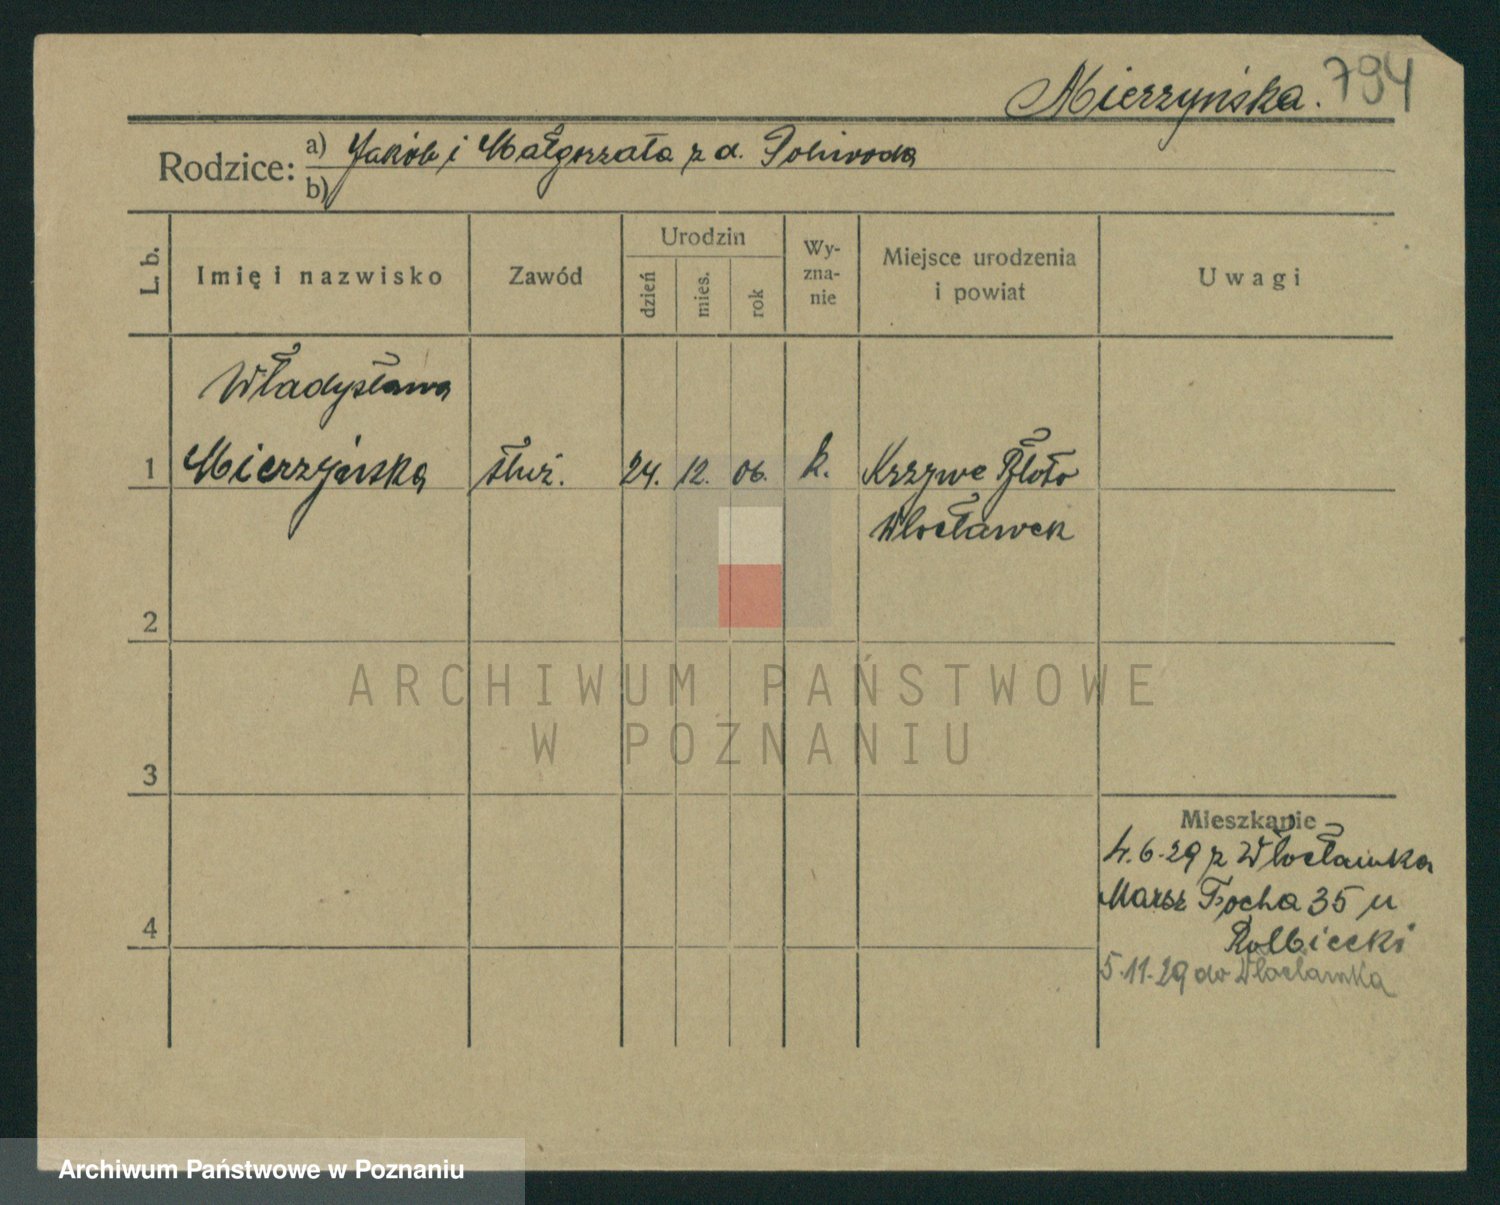 Mierzyńska. 794
Rodzice: a) Jakób i Małgorzata z d. Poliwoda
b)
L. b. Imię i nazwisko Zawód Urodzin dzień mies. rok Wy-zna-nie Miejsce urodzenia i powiat Uwagi
Władysława
1 Mierzyńska służ. 24. 12. 06. k. Krzywe Błoto
Włocławek
2
ARCHIWUM PAŃSTWOWE
W POZNANIU
3
Mieszkanie
4.6.29 z Włocławka
Marsz Focha 35 u
4 Rolbiecki
5.11.29 do Włocławka
Archiwum Państwowe w Poznaniu